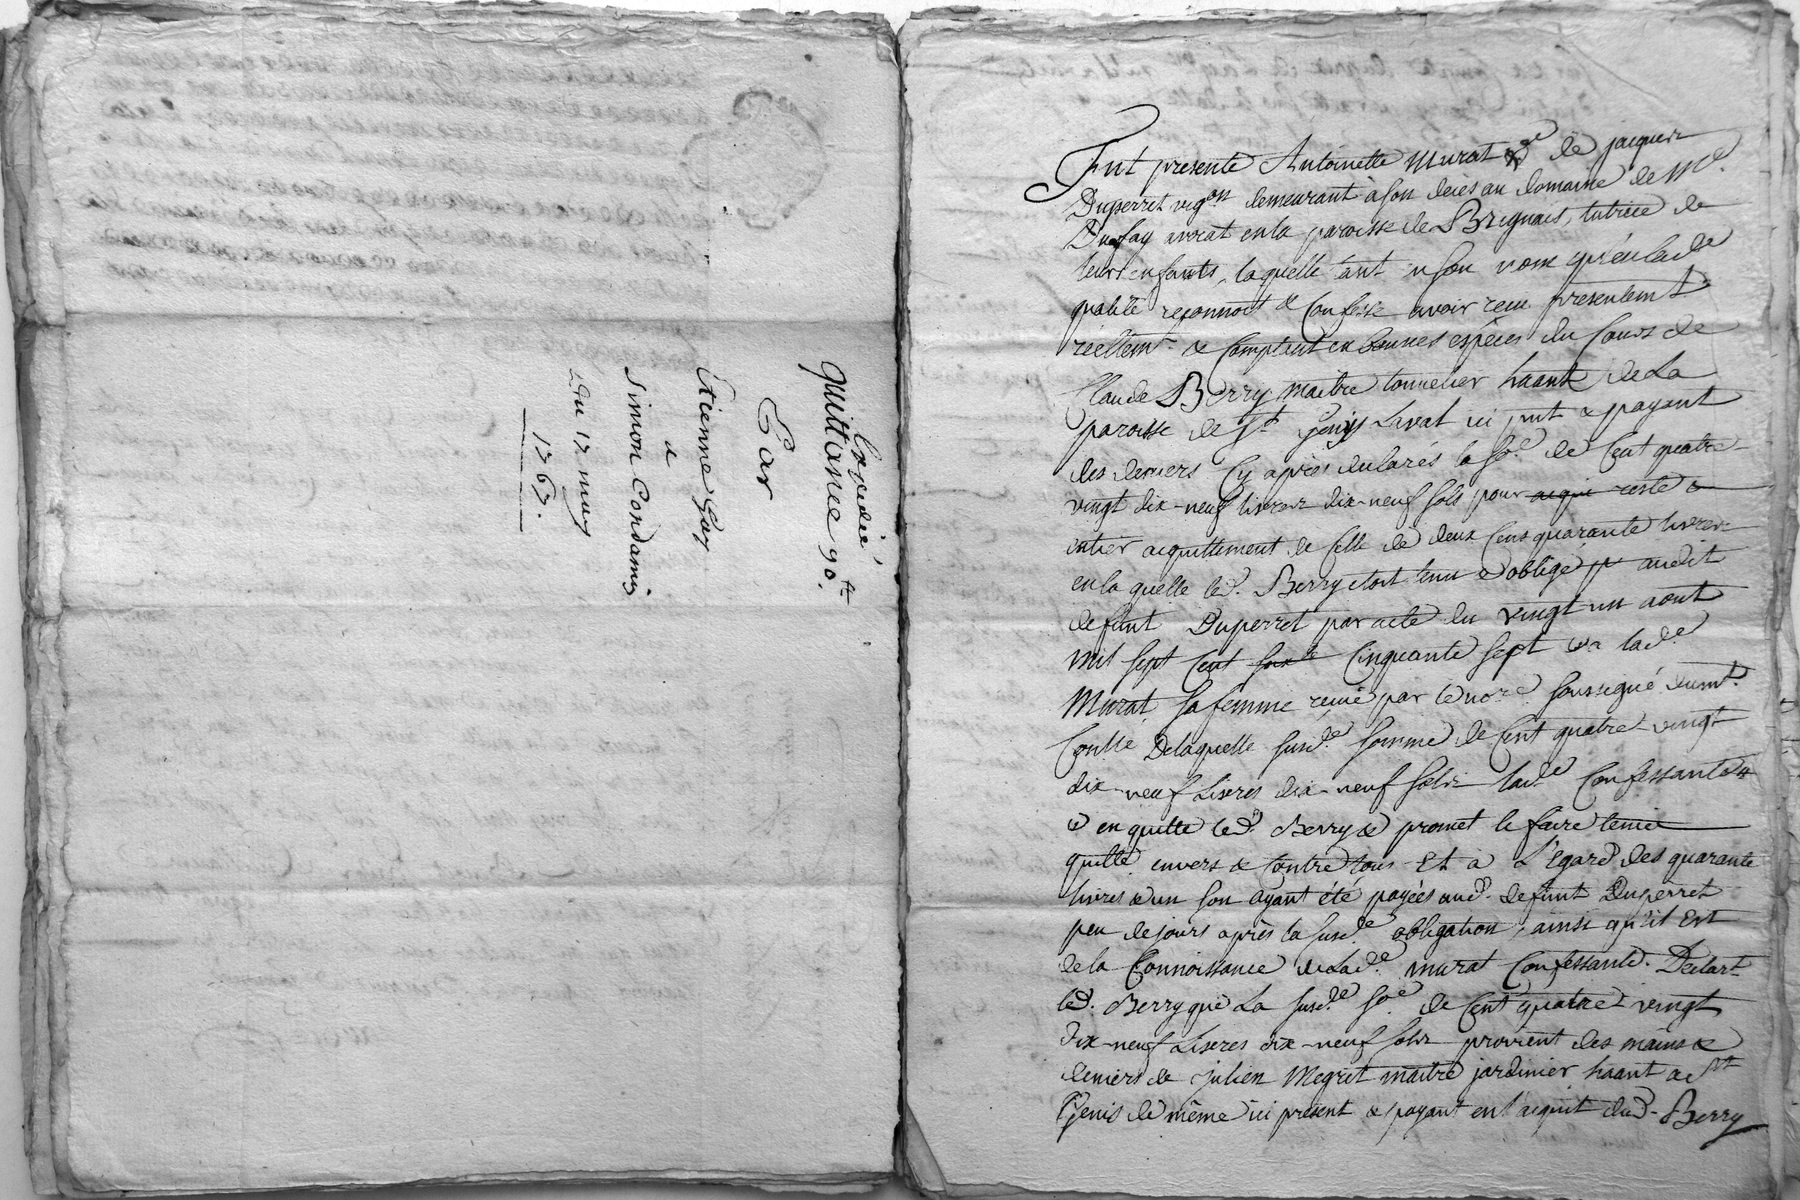 Expedié
Quittance 90.tt
Par
Etienne Gay
a
Simon Condamin
Du 17 may
1767.
Fut presente Antoinette Murat v.e de jacques
Duperret vig.on demeurant a son deces au domaine de M.e
Dufay avocat en la paroisse de Brignais, tutrice de
leurs enfants, laquelle tant en son nom qu'en lad.e
qualité reconnoit & Confesse avoir reçu presentement
réellem.t & Comptant en bonnes espèces du Cours de
Claude Berry maitre tonnelier h.ant de La
paroisse de S.t Genis Laval ici p.nt & payant
des deniers Cy après declarés la so.e de Cent quatre
vingt dix-neuf livres dix-neuf sols pour reste &
entier acquittement de Celle de deux Cens quarante livres
en la quelle led. Berry etoit tenu & obligé audit
defunt Duperret par acte du vingt un aout
mil sept Cent Cinquante sept & a lad.e
Murat sa femme reçue par le no.re soussigné dument
Conllé De laquelle susd.e somme de Cent quatre vingt
dix-neuf Livres dix-neuf sols lad.e Confessante
& en quitte led. Berry & promet le faire tenir
quitte envers & Contre tous Et à L'Egard des quarante
livres & un sou ayant été payées aud. defunt Duperret
peu de jours après la susd.e obligation, ainsi qu'il Est
de la Connoissance de Lad.e Murat Confessante. Declar.t
led. Berry que La susd.e so.e de Cent quatre vingt
Dix-neuf Livres dix-neuf sols provient des mains &
deniers de Julien Megret maitre jardinier h.ant a S.t
Genis de même ici présent & payant en l'acquit dud. Berry